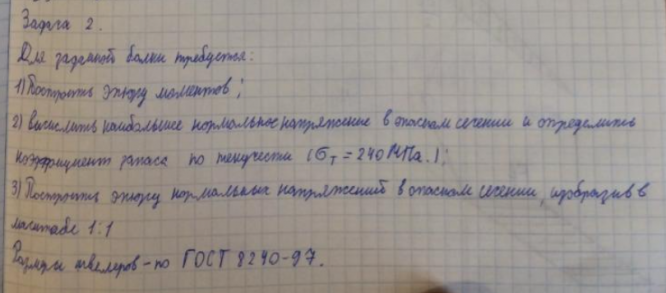 Задача 2.
Для заданной балки требуется:
1) Построить эпюру моментов;
2) Вычислить наибольшее нормальное напряжение в опасном сечении и определить
коэффициент запаса по текучести (σт = 240 МПа.);
3) Построить эпюру нормальных напряжений в опасном сечении, изобразив в
масштабе 1:1
Размеры швеллеров - по ГОСТ 8240-97.